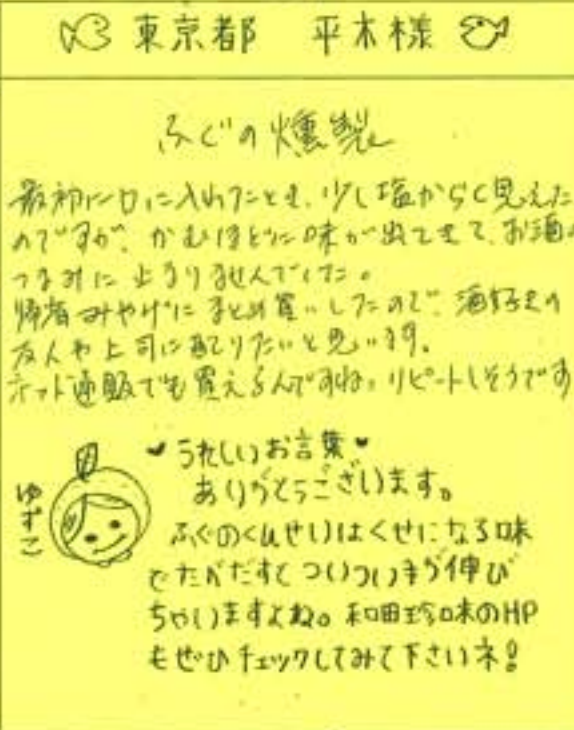 東京都 平木様
ふぐの燻製
最初に口に入れたとき、少し塩からく見えた
のですが、かむほどに味が出てきて、お酒の
つまみに止まりませんでした。
帰省みやげにまとめ買いしたので、酒好きの
友人や上司に配りたいと思います。
ネット通販でも買えるんですね。リピートしそうです
うれしいお言葉
ありがとうございます。
ゆずこ
ふぐのくんせいはくせになる味
でただすとついつい手が伸び
ちゃいますよね。和田珍味のHP
もぜひチェックしてみて下さいネ!